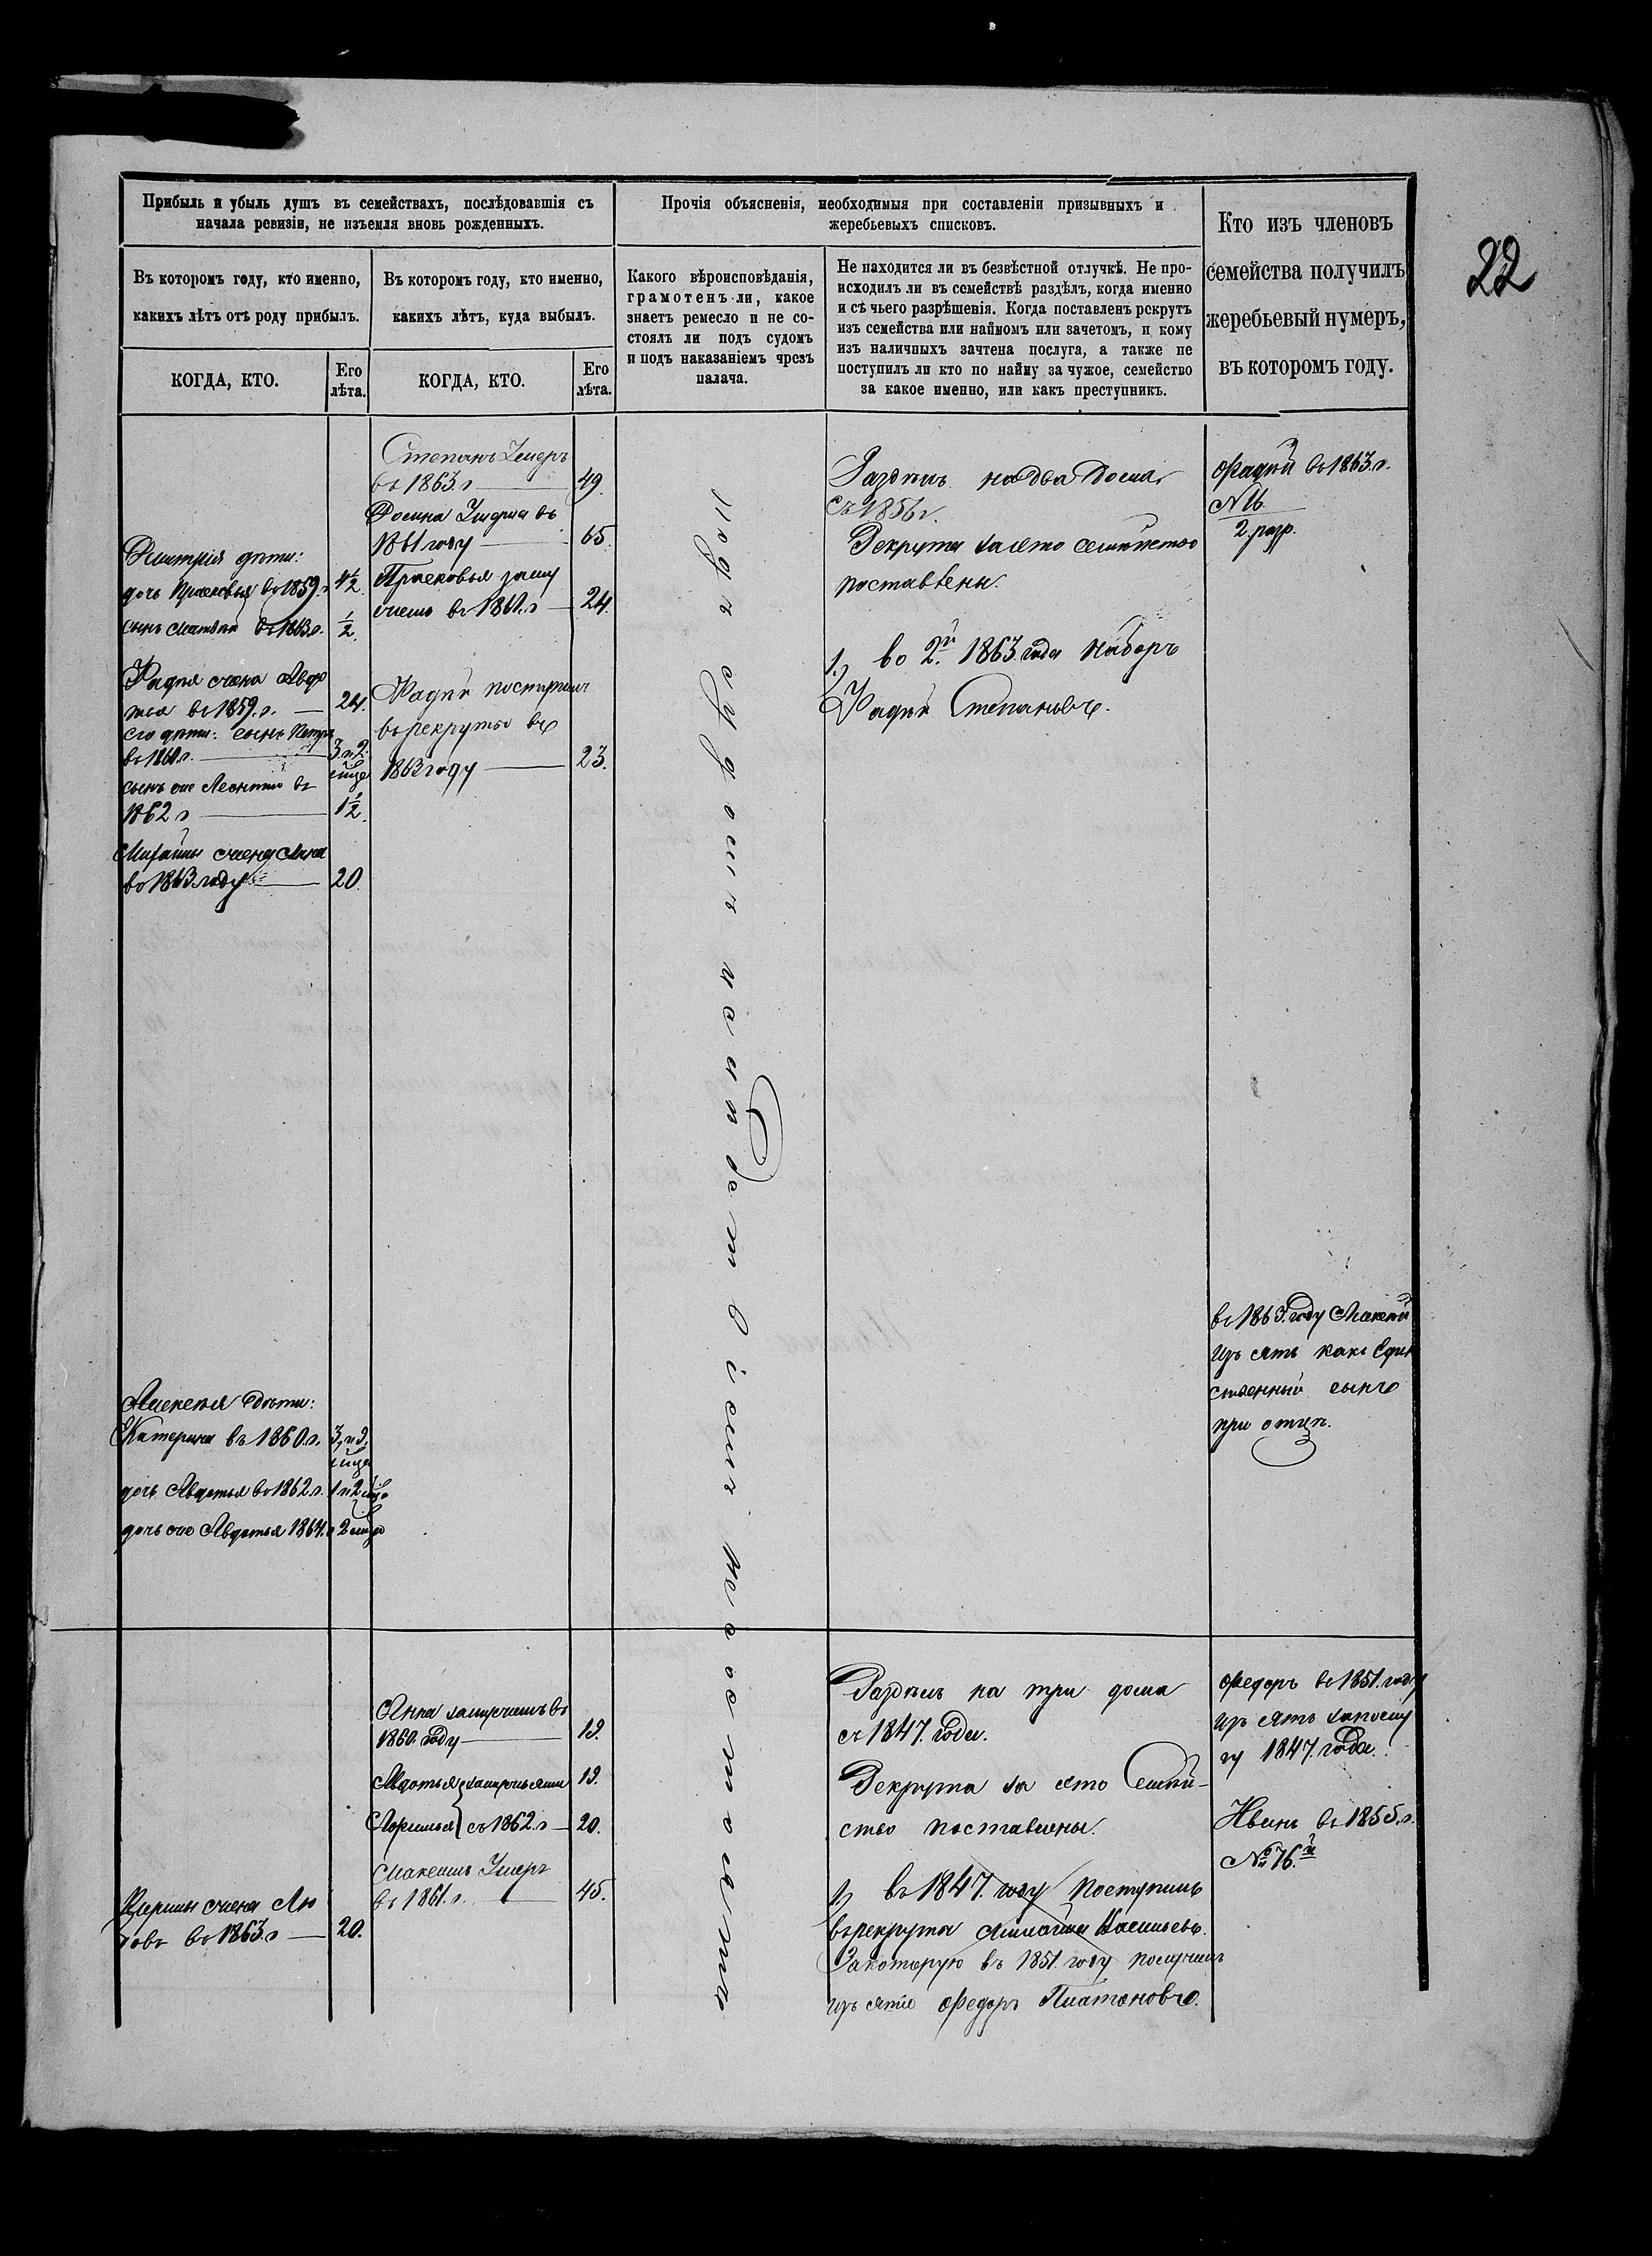 22
Прибыль и убыль душъ въ семействахъ, послѣдовавшія съ
начала ревизіи, не изъемля вновь рожденныхъ.
Прочія объясненія, необходимыя при составленіи призывныхъ и
жеребьевыхъ списковъ.
Кто изъ членовъ
семейства получилъ
жеребьевый нумеръ,
въ которомъ году.
Въ которомъ году, кто именно,
какихъ лѣтъ отъ роду прибылъ.
Въ которомъ году, кто именно,
какихъ лѣтъ, куда выбылъ.
Какого вѣроисповѣданія,
грамотенъ-ли, какое
знаетъ ремесло и не со-
стоялъ ли подъ судомъ
и подъ наказаніемъ чрезъ
палача.
Не находится ли въ безвѣстной отлучкѣ. Не про-
исходилъ ли въ семействѣ раздѣлъ, когда именно
и съ чьего разрѣшенія. Когда поставленъ рекрутъ
изъ семейства или наймомъ или зачетомъ, и кому
изъ наличныхъ зачтена послуга, а также не
поступилъ ли кто по найму за чужое, семейство
за какое именно, или какъ преступникъ.
КОГДА, КТО.
Его
лѣта.
КОГДА, КТО.
Его
лѣта.
Дмитрія дѣти:
дочь Прасковья въ 1859. г 4½
сынъ Матвѣй въ 1863. г. ½.
Фадѣя жена Авдо
тья въ 1859. г. 24.
его дѣти: сынъ Петръ
въ 1860 г. 3 и 2.
сынъ Леонтій въ
1862 г 1½.
Михайлы жена Анна
въ 1863 году 20
Алексѣя дѣти:
Катерина въ 1860. г. 3, и 9.
дочь Авдотья въ 1862. г. 1 и 2
дочь Авдотья 1864. г 2
жена Лю
въ 1863. г 20.
Степанъ Умеръ
въ 1863. г 49.
Умерла въ
1861 году 65.
Прасковья заму
жемъ въ 1861. г 24.
Фадѣй поступилъ
въ рекруты въ
1863 году 23.
Анна замужемъ въ
1860. году 19.
Авдотья замужьями 19.
съ 1862. г 20.
Умеръ
въ 1861. г. 45.
Подъ судомъ и слѣдствіемъ не состояли
Раздѣлъ на два дома
съ 1856 г.
Рекрута за это семейство
поставлены.
1, во 2.й 1863 года наборъ
Фадѣй Степановъ.
Раздѣлъ на три дома
съ 1847. года.
Рекрута за это Семей-
ство поставлены.
1, въ 1847. году поступилъ
въ рекрута Васильевъ.
За которую въ 1851. году получилъ
изъятіе Федоръ Платоновъ.
Фадѣй въ 1863. г.
№ 16.
2. разр.
въ 1863. году Алексѣй
изъятъ какъ Един
ственный сынъ
при отцѣ.
Федоръ въ 1851. году
изъятъ за послу
гу 1847. года.
Иванъ въ 1855. г.
№ 76.й